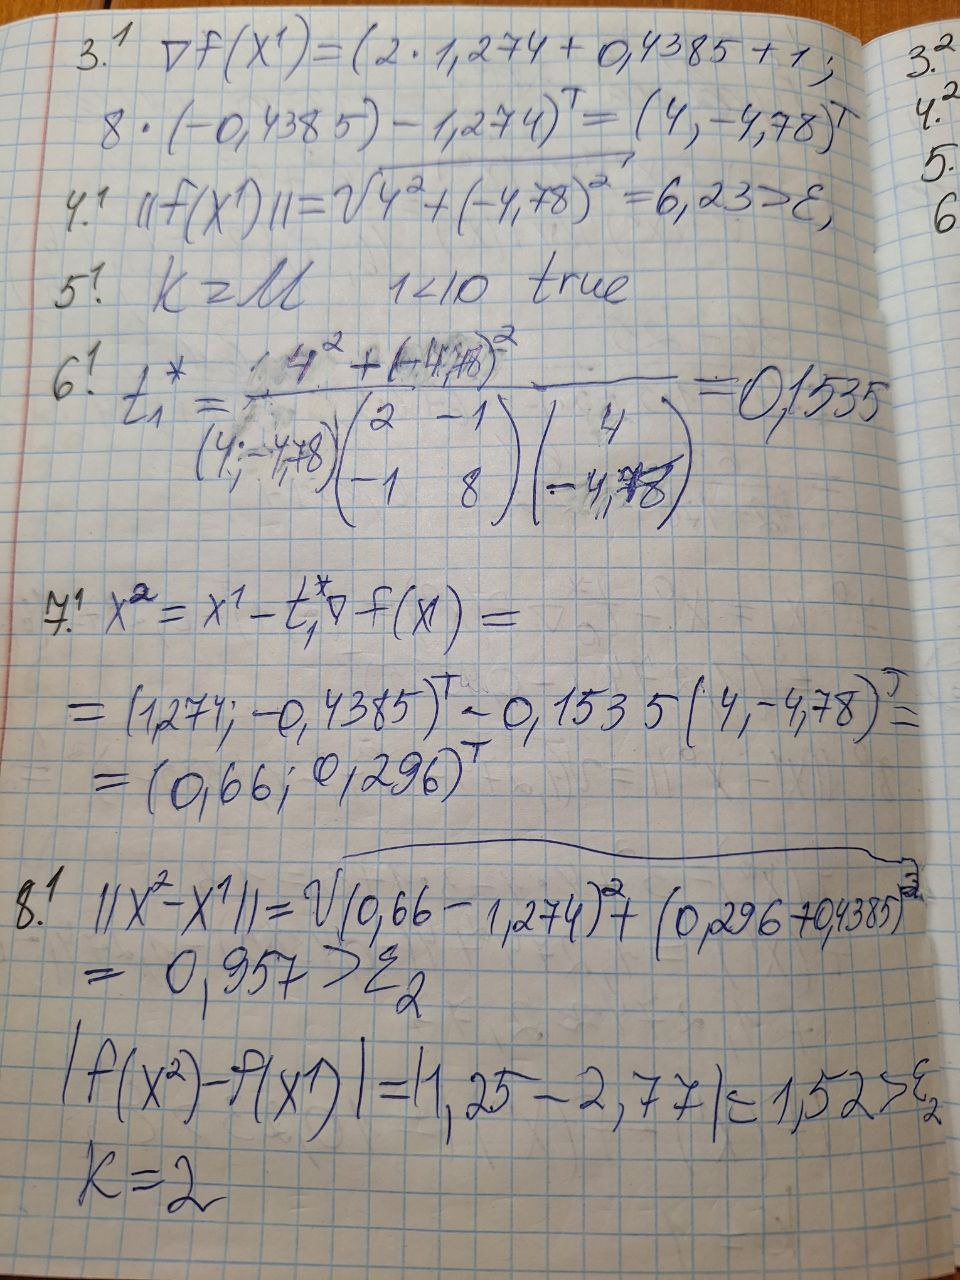 3.¹ ∇f(x¹)=(2·1,274+0,4385+1;
8·(-0,4385)-1,274)ᵀ=(4,-4,78)ᵀ
4.¹ ||f(x¹)||=√4²+(-4,78)²=6,23>ε,
5.¹ K=M 1<10 true
6.¹ t₁* = 4²+(-4,78)² =0,1535
(4;-4,78)(2 -1 4
-1 8)(-4,78)
7.¹ x²=x¹-t₁*∇f(x¹)=
=(1,274;-0,4385)ᵀ-0,1535(4,-4,78)ᵀ=
=(0,66;0,296)ᵀ
8.¹ ||x²-x¹||=√(0,66-1,274)²+(0,296+0,4385)²
= 0,957>ε₂
|f(x²)-f(x¹)|=|1,25-2,77|=1,52>ε₂
K=2
3.²
4.²
5.
6